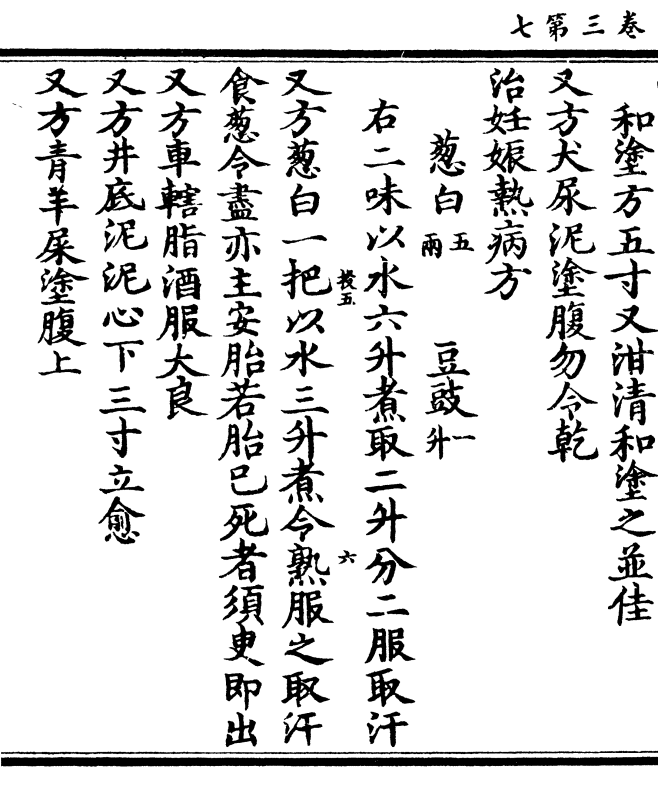 卷三第七
和塗方五寸又泔清和塗之並佳
又方犬尿泥塗腹勿令乾
治妊娠熱病方
葱白五兩 豆豉一升
右二味以水六升煮取二升分二服取汗
五 六
又方葱白一把以水三升煮令熟服之取汗
食葱令盡亦主安胎若胎已死者須臾即出
又方車轄脂酒服大良
又方井底泥泥心下三寸立愈
又方青羊屎塗腹上